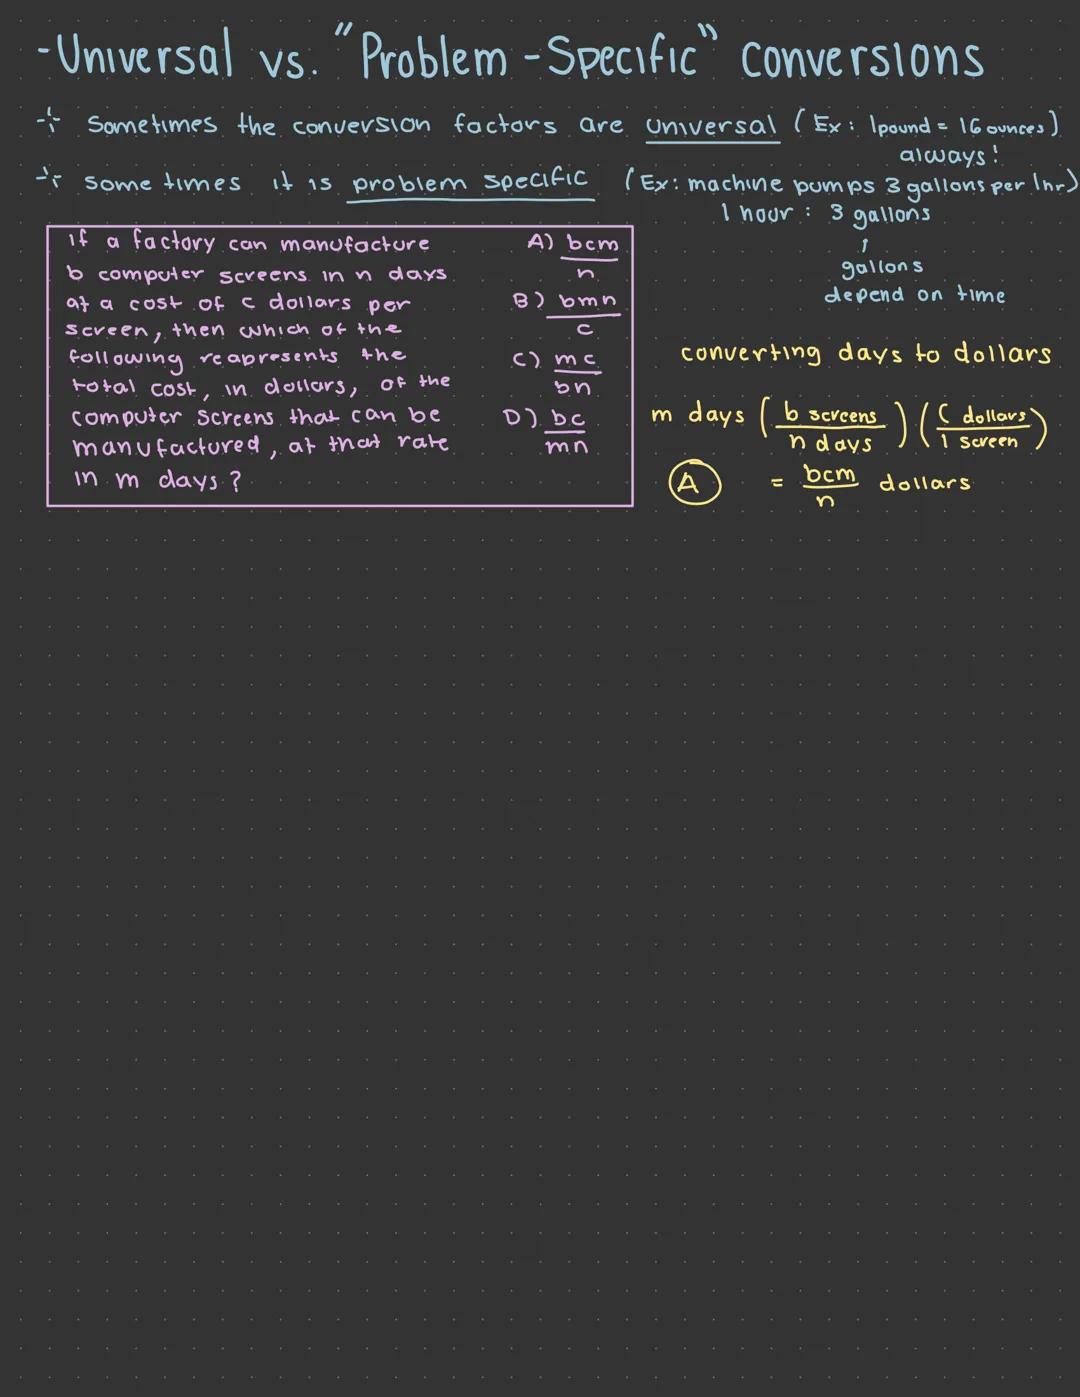 -Universal vs. "Problem-Specific" conversions
Sometimes the conversion factors are universal (Ex: 1pound = 16 ounces)
always!
some times it is problem specific (Ex: machine pumps 3 gallons per 1hr)
1 hour : 3 gallons
↑
gallons
depend on time
If a factory can manufacture
b computer screens in n days
at a cost of c dollars per
screen, then which of the
following reapresents the
total cost, in dollars, of the
computer screens that can be
manufactured, at that rate
in m days?
A) bcm
n
B) bmn
c
C) mc
bn
D) bc
mn
converting days to dollars
m days (b screens / n days) (c dollars / 1 screen)
A = bcm / n dollars